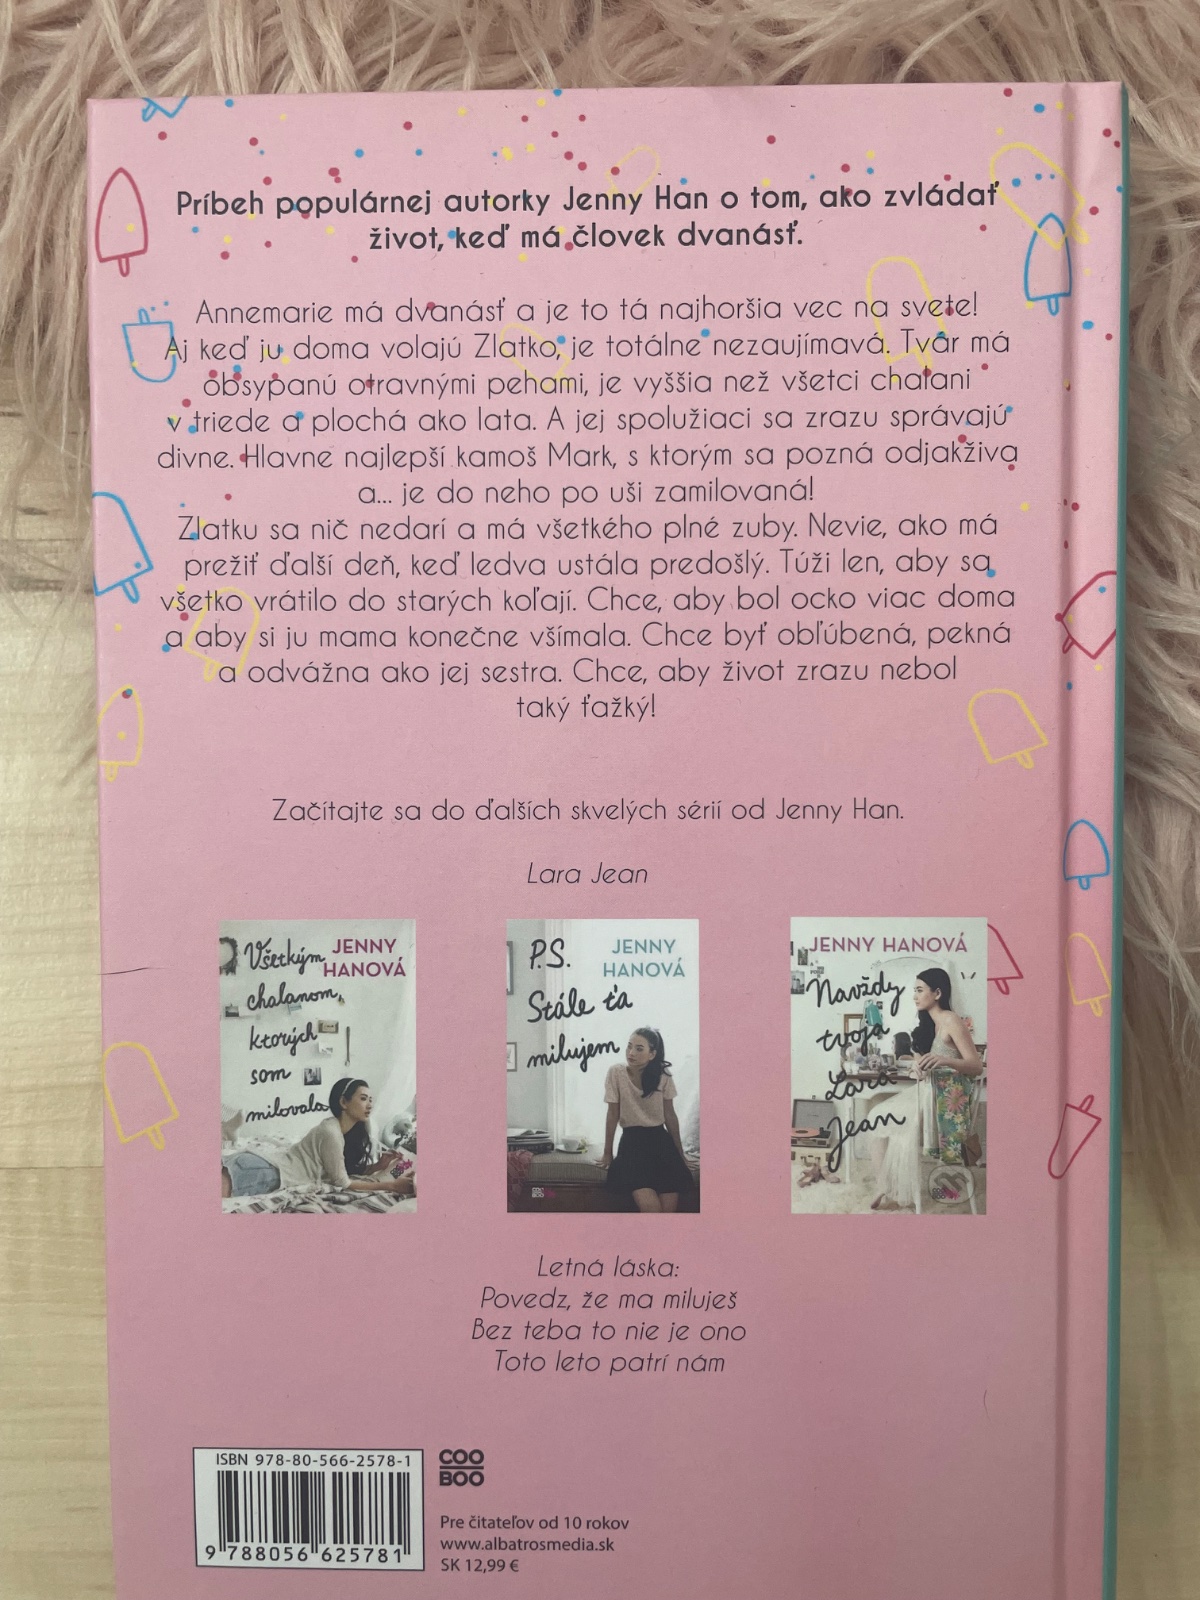 Príbeh populárnej autorky Jenny Han o tom, ako zvládať
život, keď má človek dvanásť.
Annemarie má dvanásť a je to tá najhoršia vec na svete!
Aj keď ju doma volajú Zlatko, je totálne nezaujímavá. Tvár má
obsypanú otravnými pehami, je vyššia než všetci chalani
v triede a plochá ako lata. A jej spolužiaci sa zrazu správajú
divne. Hlavne najlepší kamoš Mark, s ktorým sa pozná odjakživa
a... je do neho po uši zamilovaná!
Zlatku sa nič nedarí a má všetkého plné zuby. Nevie, ako má
prežiť ďalší deň, keď ledva ustála predošlý. Túži len, aby sa
všetko vrátilo do starých koľají. Chce, aby bol ocko viac doma
a aby si ju mama konečne všímala. Chce byť obľúbená, pekná
a odvážna ako jej sestra. Chce, aby život zrazu nebol
taký ťažký!
Začítajte sa do ďalších skvelých sérií od Jenny Han.
Lara Jean
Všetkým
chalanom,
ktorých
som
milovala
JENNY
HANOVÁ
P.S.
Stále ťa
milujem
JENNY
HANOVÁ
JENNY HANOVÁ
Navždy
tvoja
Lara
Jean
Letná láska:
Povedz, že ma miluješ
Bez teba to nie je ono
Toto leto patrí nám
ISBN 978-80-566-2578-1
9 788056 625781
COO
BOO
Pre čitateľov od 10 rokov
www.albatrosmedia.sk
SK 12,99 €